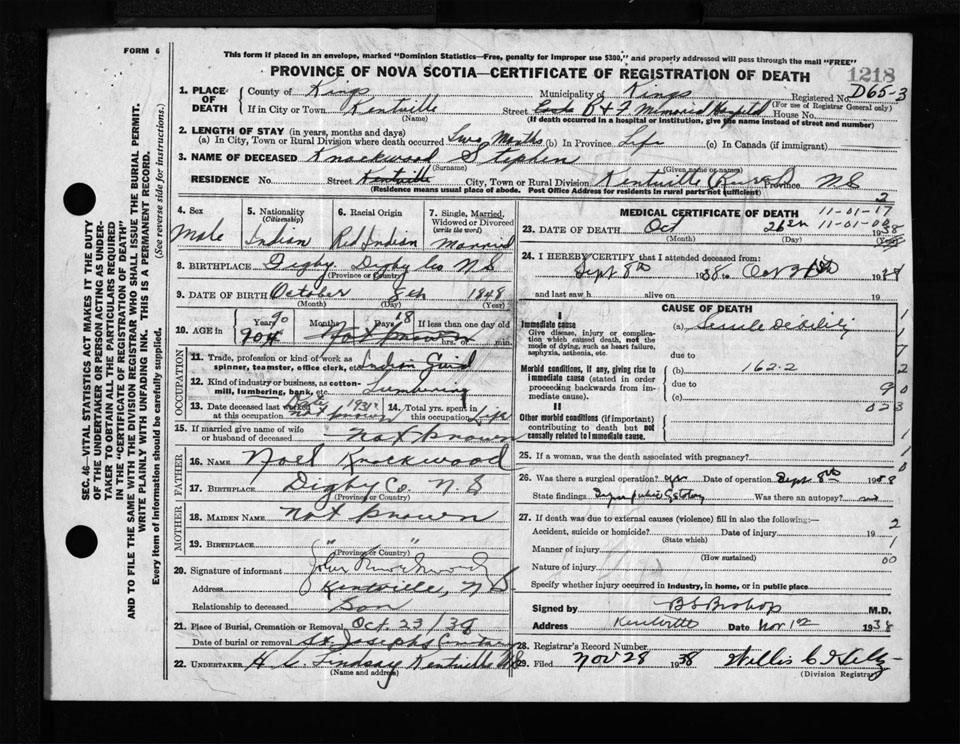 FORM 6
This form if placed in an envelope, marked "Dominion Statistics—Free, penalty for improper use $300," and properly addressed will pass through the mail "FREE"
PROVINCE OF NOVA SCOTIA—CERTIFICATE OF REGISTRATION OF DEATH
1218
1. PLACE OF DEATH
County of Kings Municipality of Kings Registered No. D65-3
If in City or Town Kentville Street B & F Memorial Hospital House No. (For use of Registrar General only)
(Name) (If death occurred in a hospital or institution, give the name instead of street and number)
2. LENGTH OF STAY (in years, months and days)
(a) In City, Town or Rural Division where death occurred Two Months (b) In Province Life (c) In Canada (if immigrant)
3. NAME OF DECEASED Knockwood Stephen
(Surname) (Given name or names)
RESIDENCE No. Street Kentville City, Town or Rural Division Kentville (Rural) Province NS
(Residence means usual place of abode. Post Office Address for residents in rural parts not sufficient)
4. Sex Male
5. Nationality (Citizenship) Indian
6. Racial Origin Red Indian
7. Single, Married, Widowed or Divorced (write the word) Married
8. BIRTHPLACE Digby Digby Co NS
(Province or Country)
9. DATE OF BIRTH October 8th 1848
(Month) (Day) (Year)
10. AGE in Years 90 Months Days 18 If less than one day old
904 Not known hrs. or min.
OCCUPATION
11. Trade, profession or kind of work as spinner, teamster, office clerk, etc. Indian Guid
12. Kind of industry or business, as cotton-mill, lumbering, bank, etc. Lumbering
13. Date deceased last worked at this occupation Date not known 193
14. Total yrs. spent in this occupation Life
15. If married give name of wife or husband of deceased not known
FATHER
16. NAME Noel Knockwood
17. BIRTHPLACE Digby Co. N.S
(Province or Country)
MOTHER
18. MAIDEN NAME not known
19. BIRTHPLACE "  "
(Province or Country)
20. Signature of informant John Knockwood
Address Kentville, N S.
Relationship to deceased Son
21. Place of Burial, Cremation or Removal Oct. 23/38
Date of burial or removal St. Josephs Cemetary
22. UNDERTAKER H. C. Lindsay Kentville NS
(Name and address)
MEDICAL CERTIFICATE OF DEATH
2
11-01-17
11-01-03
23. DATE OF DEATH Oct 26th 1938
(Month) (Day) (Year)
24. I HEREBY CERTIFY that I attended deceased from:
Sept 8th 1938 to Oct 1938
and last saw h alive on 19
CAUSE OF DEATH
I
Immediate cause
Give disease, injury or complication which caused death, not the mode of dying, such as heart failure, asphyxia, asthenia, etc.
(a) Senile Debility
due to
Morbid conditions, if any, giving rise to immediate cause (stated in order proceeding backwards from immediate cause).
(b) 162.2
due to
(c)
II
Other morbid conditions (if important) contributing to death but not causally related to immediate cause.
25. If a woman, was the death associated with pregnancy?
26. Was there a surgical operation? yes Date of operation Sept. 8th 1938
State findings Suprapubic Cystotomy Was there an autopsy? no
27. If death was due to external causes (violence) fill in also the following:—
Accident, suicide or homicide? Date of injury 19
(State which)
Manner of injury
(How sustained)
Nature of injury
Specify whether injury occurred in industry, in home, or in public place
Signed by B S Bishop M.D.
Address Kentville Date Nov 1st 1938
28. Registrar's Record Number
29. Filed Nov 28 1938 Willis C
(Division Registrar)
SEC. 46—VITAL STATISTICS ACT MAKES IT THE DUTY
OF THE UNDERTAKER OR PERSON ACTING AS UNDERTAKER TO OBTAIN ALL THE PARTICULARS REQUIRED
IN THE "CERTIFICATE OF REGISTRATION OF DEATH"
AND TO FILE THE SAME WITH THE DIVISION REGISTRAR WHO SHALL ISSUE THE BURIAL PERMIT.
WRITE PLAINLY WITH UNFADING INK. THIS IS A PERMANENT RECORD.
Every item of information should be carefully supplied. (See reverse side for instructions.)